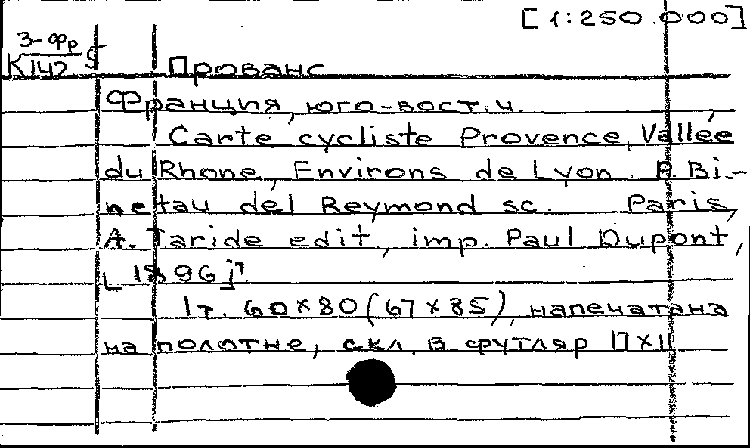 [1:250.000]
3-Фр
К142 5
Прованс
Франция, юго-вост.ч.
Carte cycliste Provence, Vallée
du Rhone, Environs de Lyon. P. Bi-
netau del Reymond sc. Paris,
A. Taride edit, imp. Paul Dupont,
[1896]
1т. 60×80 (67×85), напечатана
на полотне, скл. в футляр 17×11